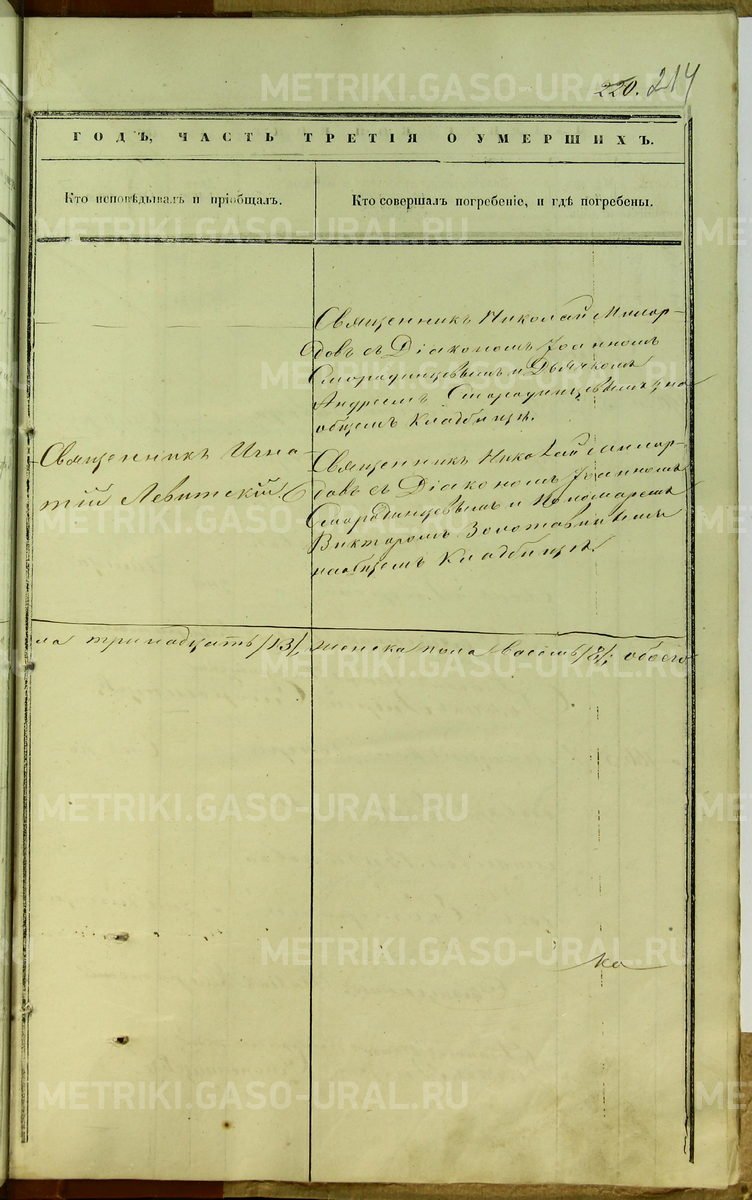 220. 214
ГОДЪ, ЧАСТЬ ТРЕТІЯ О УМЕРШИХЪ.
Кто исповѣдывалъ и пріобщалъ.
Кто совершалъ погребеніе, и гдѣ погребены.
Священникъ Николай Милар-
довъ съ Діакономъ Іоанномъ
Смородинцовымъ и Дьячкомъ
Андреемъ Смородинцовымъ, на
общемъ Кладбищѣ.
Священникъ Игна-
тій Левитскій
Священникъ Николай Милар-
довъ съ Діакономъ Іоанномъ
Смородинцовымъ и Пономаремъ
Викторомъ Золотавинымъ
на общемъ Кладбищѣ.
ла тринадцать /13/, женска пола восемь /8/; обоего
ка
METRIKI.GASO-URAL.RU